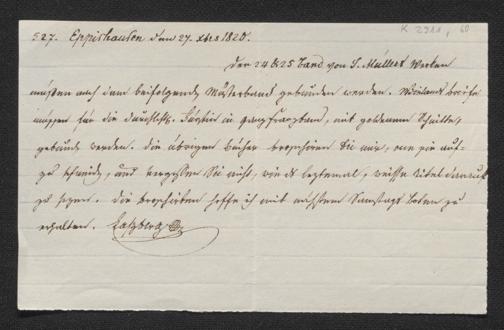 527. Eppishausen den 27. Xbris 1820. K 2911, 60
Der 24 & 25 Band von J. Müllers Werken
müssen nach dem beifolgenden Musterband gebunden werden. Wielands briefe
müssen für die durchlt. Fürstin in ganz franzband, mit goldenem Schnitte,
gebunden werden. die übrigen bücher broschiren Sie mir, one sie auf-
zu schneiden, und vergessen Sie nicht, wie das leztemal, weisse titel darauf
zu sezen. die broschirten hoffe ich mit nächstem Samstags boten zu
erhalten. Laßberg